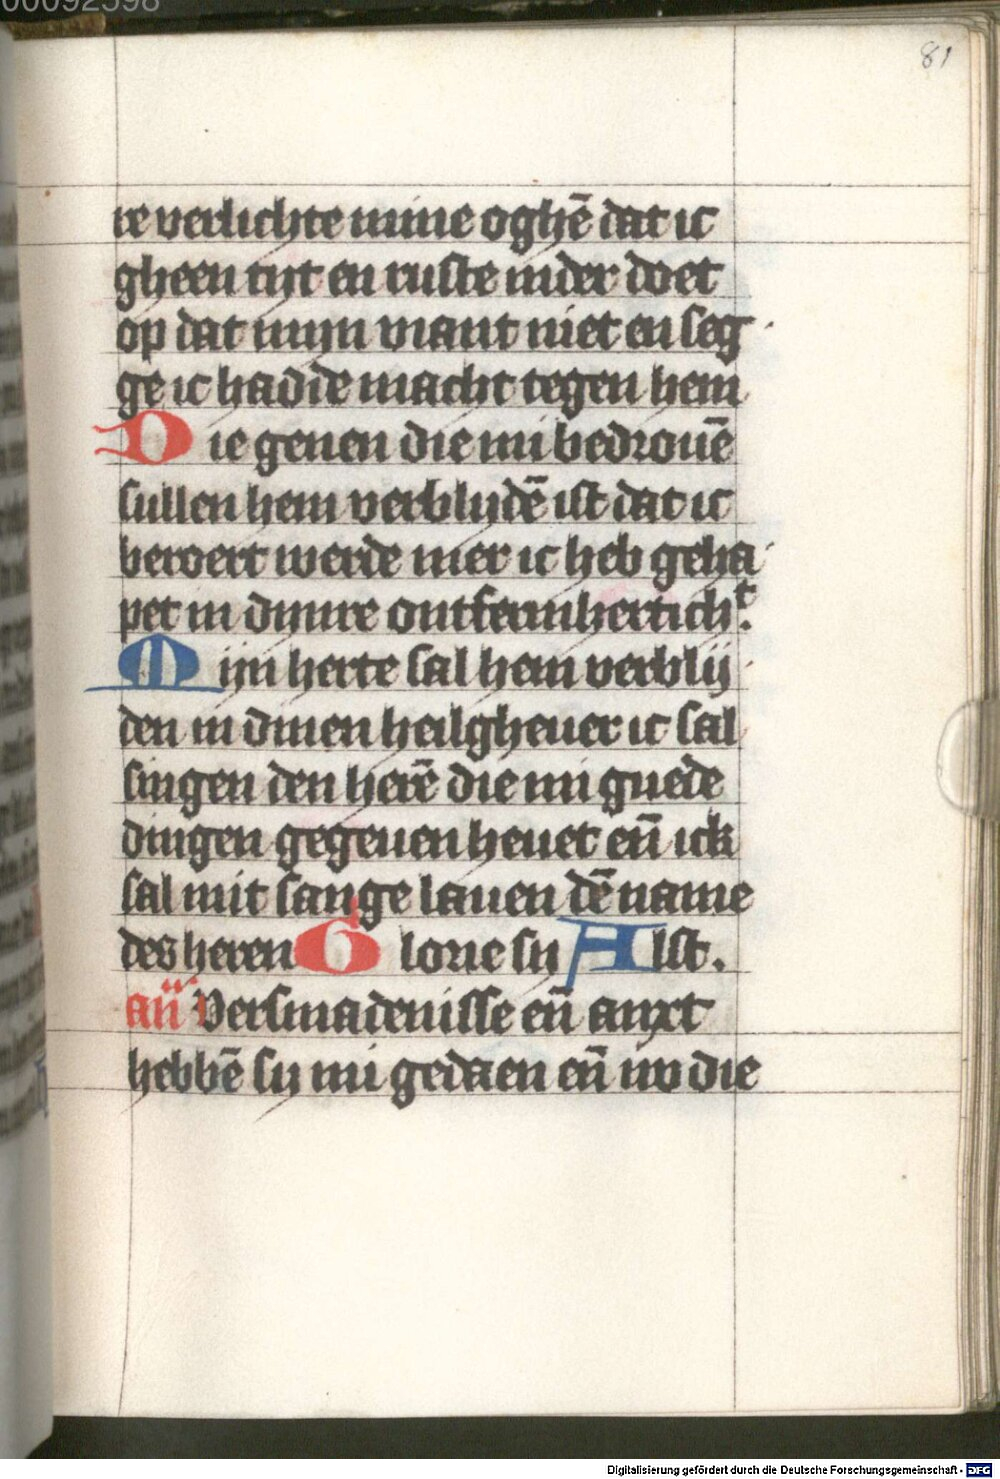 00092598
81
re verlichte mine oghē dat ic
gheen tijt en ruste in der doet
op dat mijn viant niet en seg
ge ic hadde macht tegen hem
Die genen die mi bedrouē
sullen hem verblijdē ist dat ic
beroert werde mer ic heb geha
pet in dijnre ontfermherticht.
Mijn herte sal hem verblij
den in dinen heilgheuer ic sal
singen den herē die mi guede
dingen gegeuen heuet en̄ ick
sal mit sange lauen dē name
des heren Glorie sy Alst.
an̄ Versmadenisse en̄ anxt
hebbē sy mi gedaen en̄ wo die
Digitalisierung gefördert durch die Deutsche Forschungsgemeinschaft - DFG